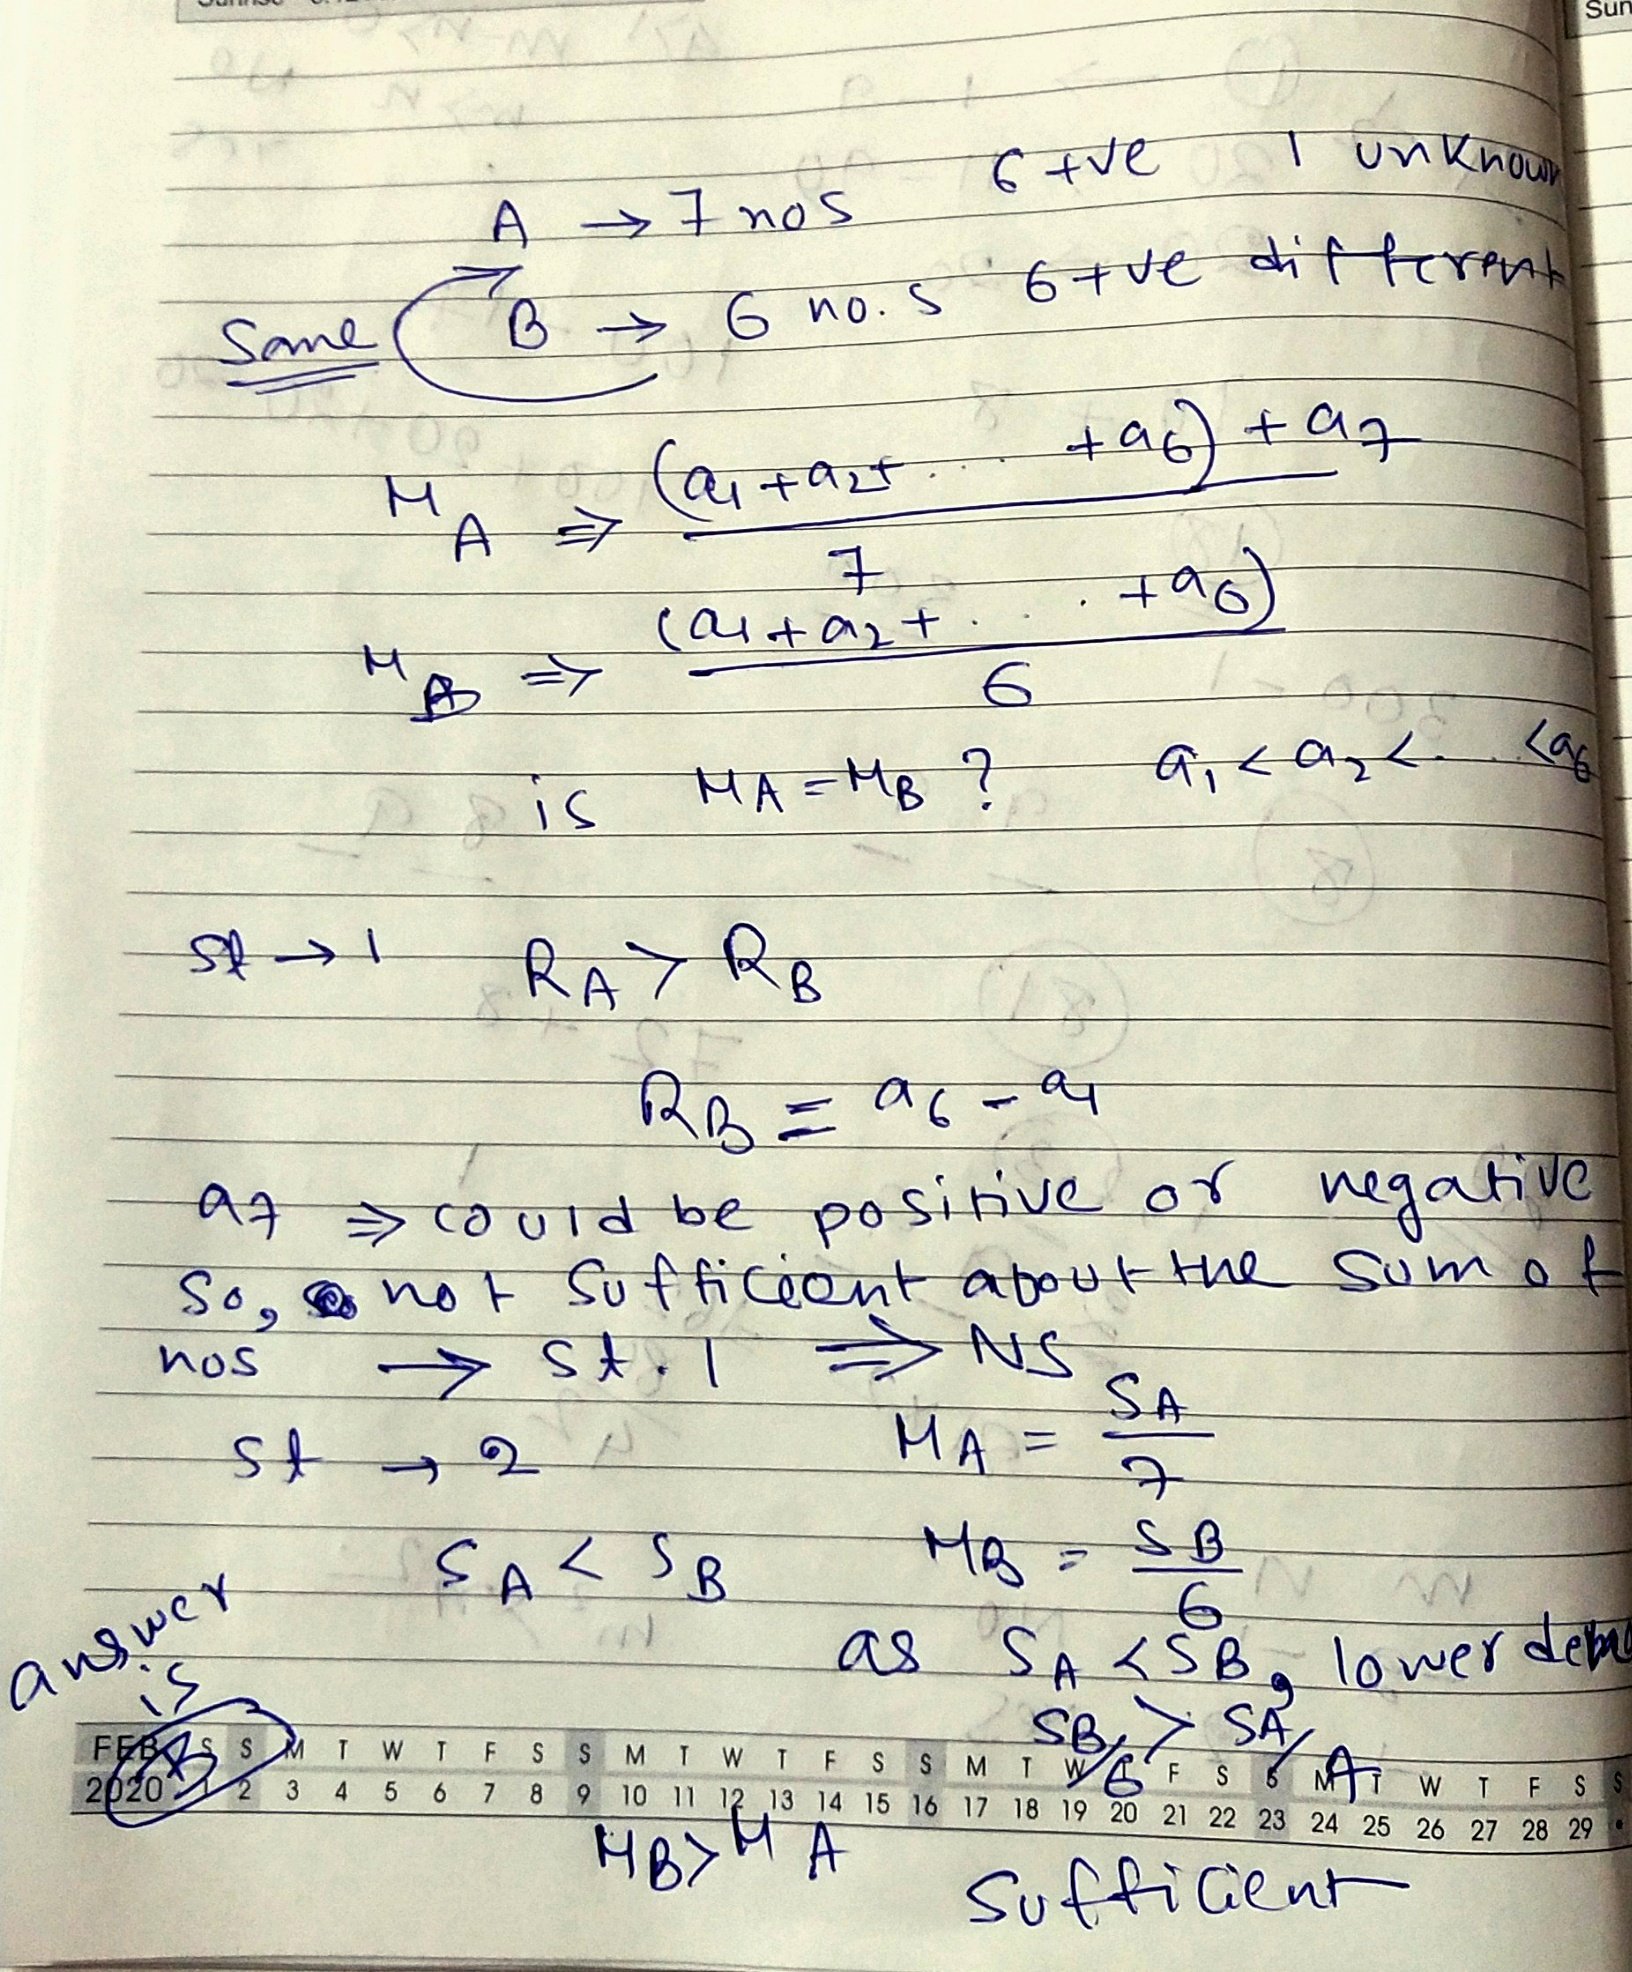 Sun
6 +ve 1 unknown
A → 7 nos
B → 6 no.s 6 +ve different
Same
M_A ⇒ (a1 + a2 + ... + a6) + a7
7
M_B ⇒ (a1 + a2 + ... + a6)
6
is M_A = M_B ? a1 < a2 < ... < a6
st → 1 R_A > R_B
R_B = a6 - a1
a7 ⇒ could be positive or negative
so, not sufficient about the sum of
nos → st. 1 ⇒ NS
st → 2 M_A = S_A / 7
S_A < S_B M_B = S_B / 6
as S_A < S_B, lower
answer
is
B
SB/6 > SA/7
FEB S S M T W T F S S M T W T F S S M T W T F S S M T W T F S S
2020 1 2 3 4 5 6 7 8 9 10 11 12 13 14 15 16 17 18 19 20 21 22 23 24 25 26 27 28 29
M_B > M_A
Sufficient